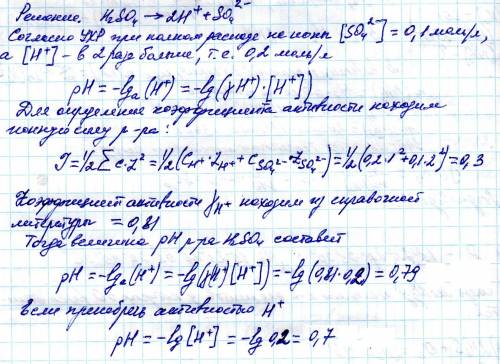 Решение. H₂SO₄ → 2H⁺ + SO₄²⁻
Согласно УХР при полном распаде на ионы [SO₄²⁻] = 0,1 моль/л,
а [H⁺] – в 2 раз больше, т.е. 0,2 моль/л
pH = -lg a(H⁺) = -lg(γH⁺)·[H⁺])
Для определения коэффициента активности находим
ионную силу р-ра:
J = ½ Σ c·Z² = ½(C_H⁺·Z_H⁺ + C_SO₄²⁻·Z_SO₄²⁻) = ½(0,2·1² + 0,1·2²) = 0,3
Коэффициент активности γ_H⁺ находим из справочной
литературы = 0,81
Тогда величина pH р-ра H₂SO₄ составит
pH = -lg a(H⁺) = -lg(γ(H⁺)[H⁺]) = -lg(0,81·0,2) = 0,79
Если пренебречь активностью H⁺
pH = -lg[H⁺] = -lg 0,2 = 0,7